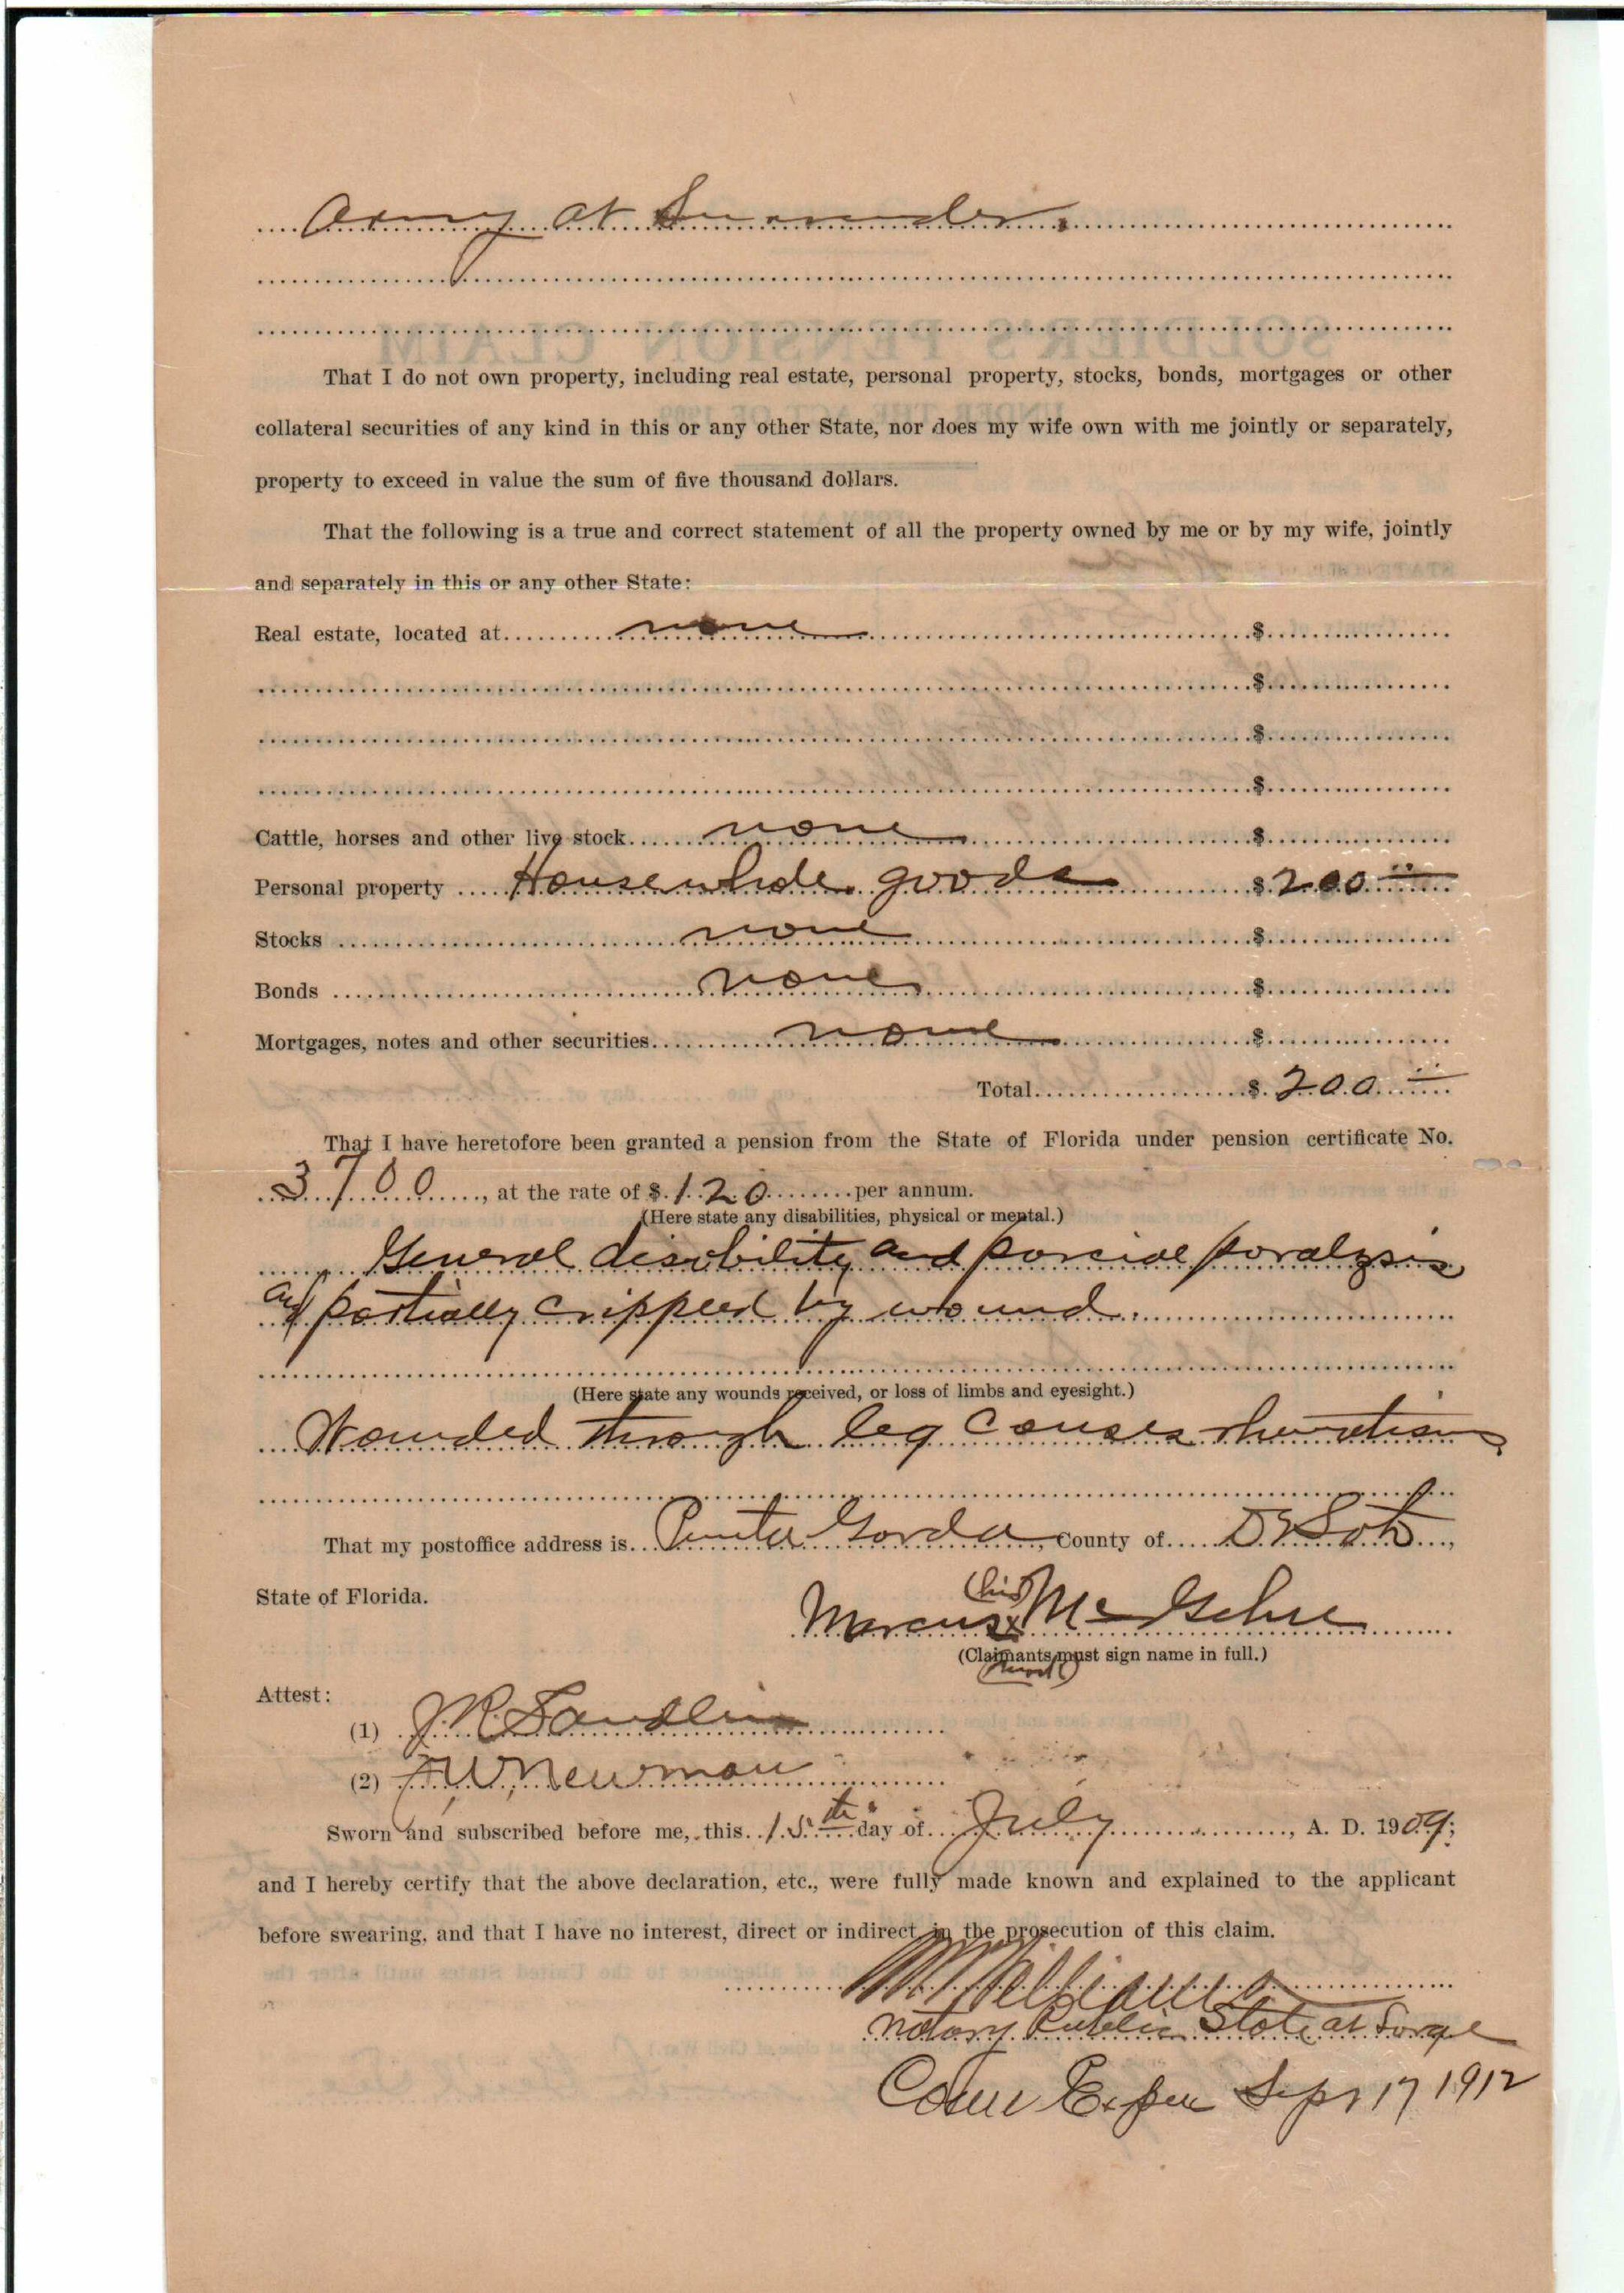 Army at Surrender.
That I do not own property, including real estate, personal property, stocks, bonds, mortgages or other
collateral securities of any kind in this or any other State, nor does my wife own with me jointly or separately,
property to exceed in value the sum of five thousand dollars.
That the following is a true and correct statement of all the property owned by me or by my wife, jointly
and separately in this or any other State:
Real estate, located at none $
$
$
$
Cattle, horses and other live stock none $
Personal property Housewhole goods $200
Stocks none $
Bonds none $
Mortgages, notes and other securities none $
Total $200
That I have heretofore been granted a pension from the State of Florida under pension certificate No.
3700, at the rate of $120 per annum.
(Here state any disabilities, physical or mental.)
General disability and parcial paralysis
and partially crippled by wound.
(Here state any wounds received, or loss of limbs and eyesight.)
Wounded through leg causes
That my postoffice address is Punta Gorda, County of DeSoto,
State of Florida.
(his)
Marcus x McGehee
(Claimants must sign name in full.)
(mark)
Attest:
(1) J.R. Sandlin
(2) Newman
Sworn and subscribed before me, this 15th day of July, A. D. 1909;
and I hereby certify that the above declaration, etc., were fully made known and explained to the applicant
before swearing, and that I have no interest, direct or indirect, in the prosecution of this claim.
Williams
Notary Public State at Large
Com Expires Sept 17 1912